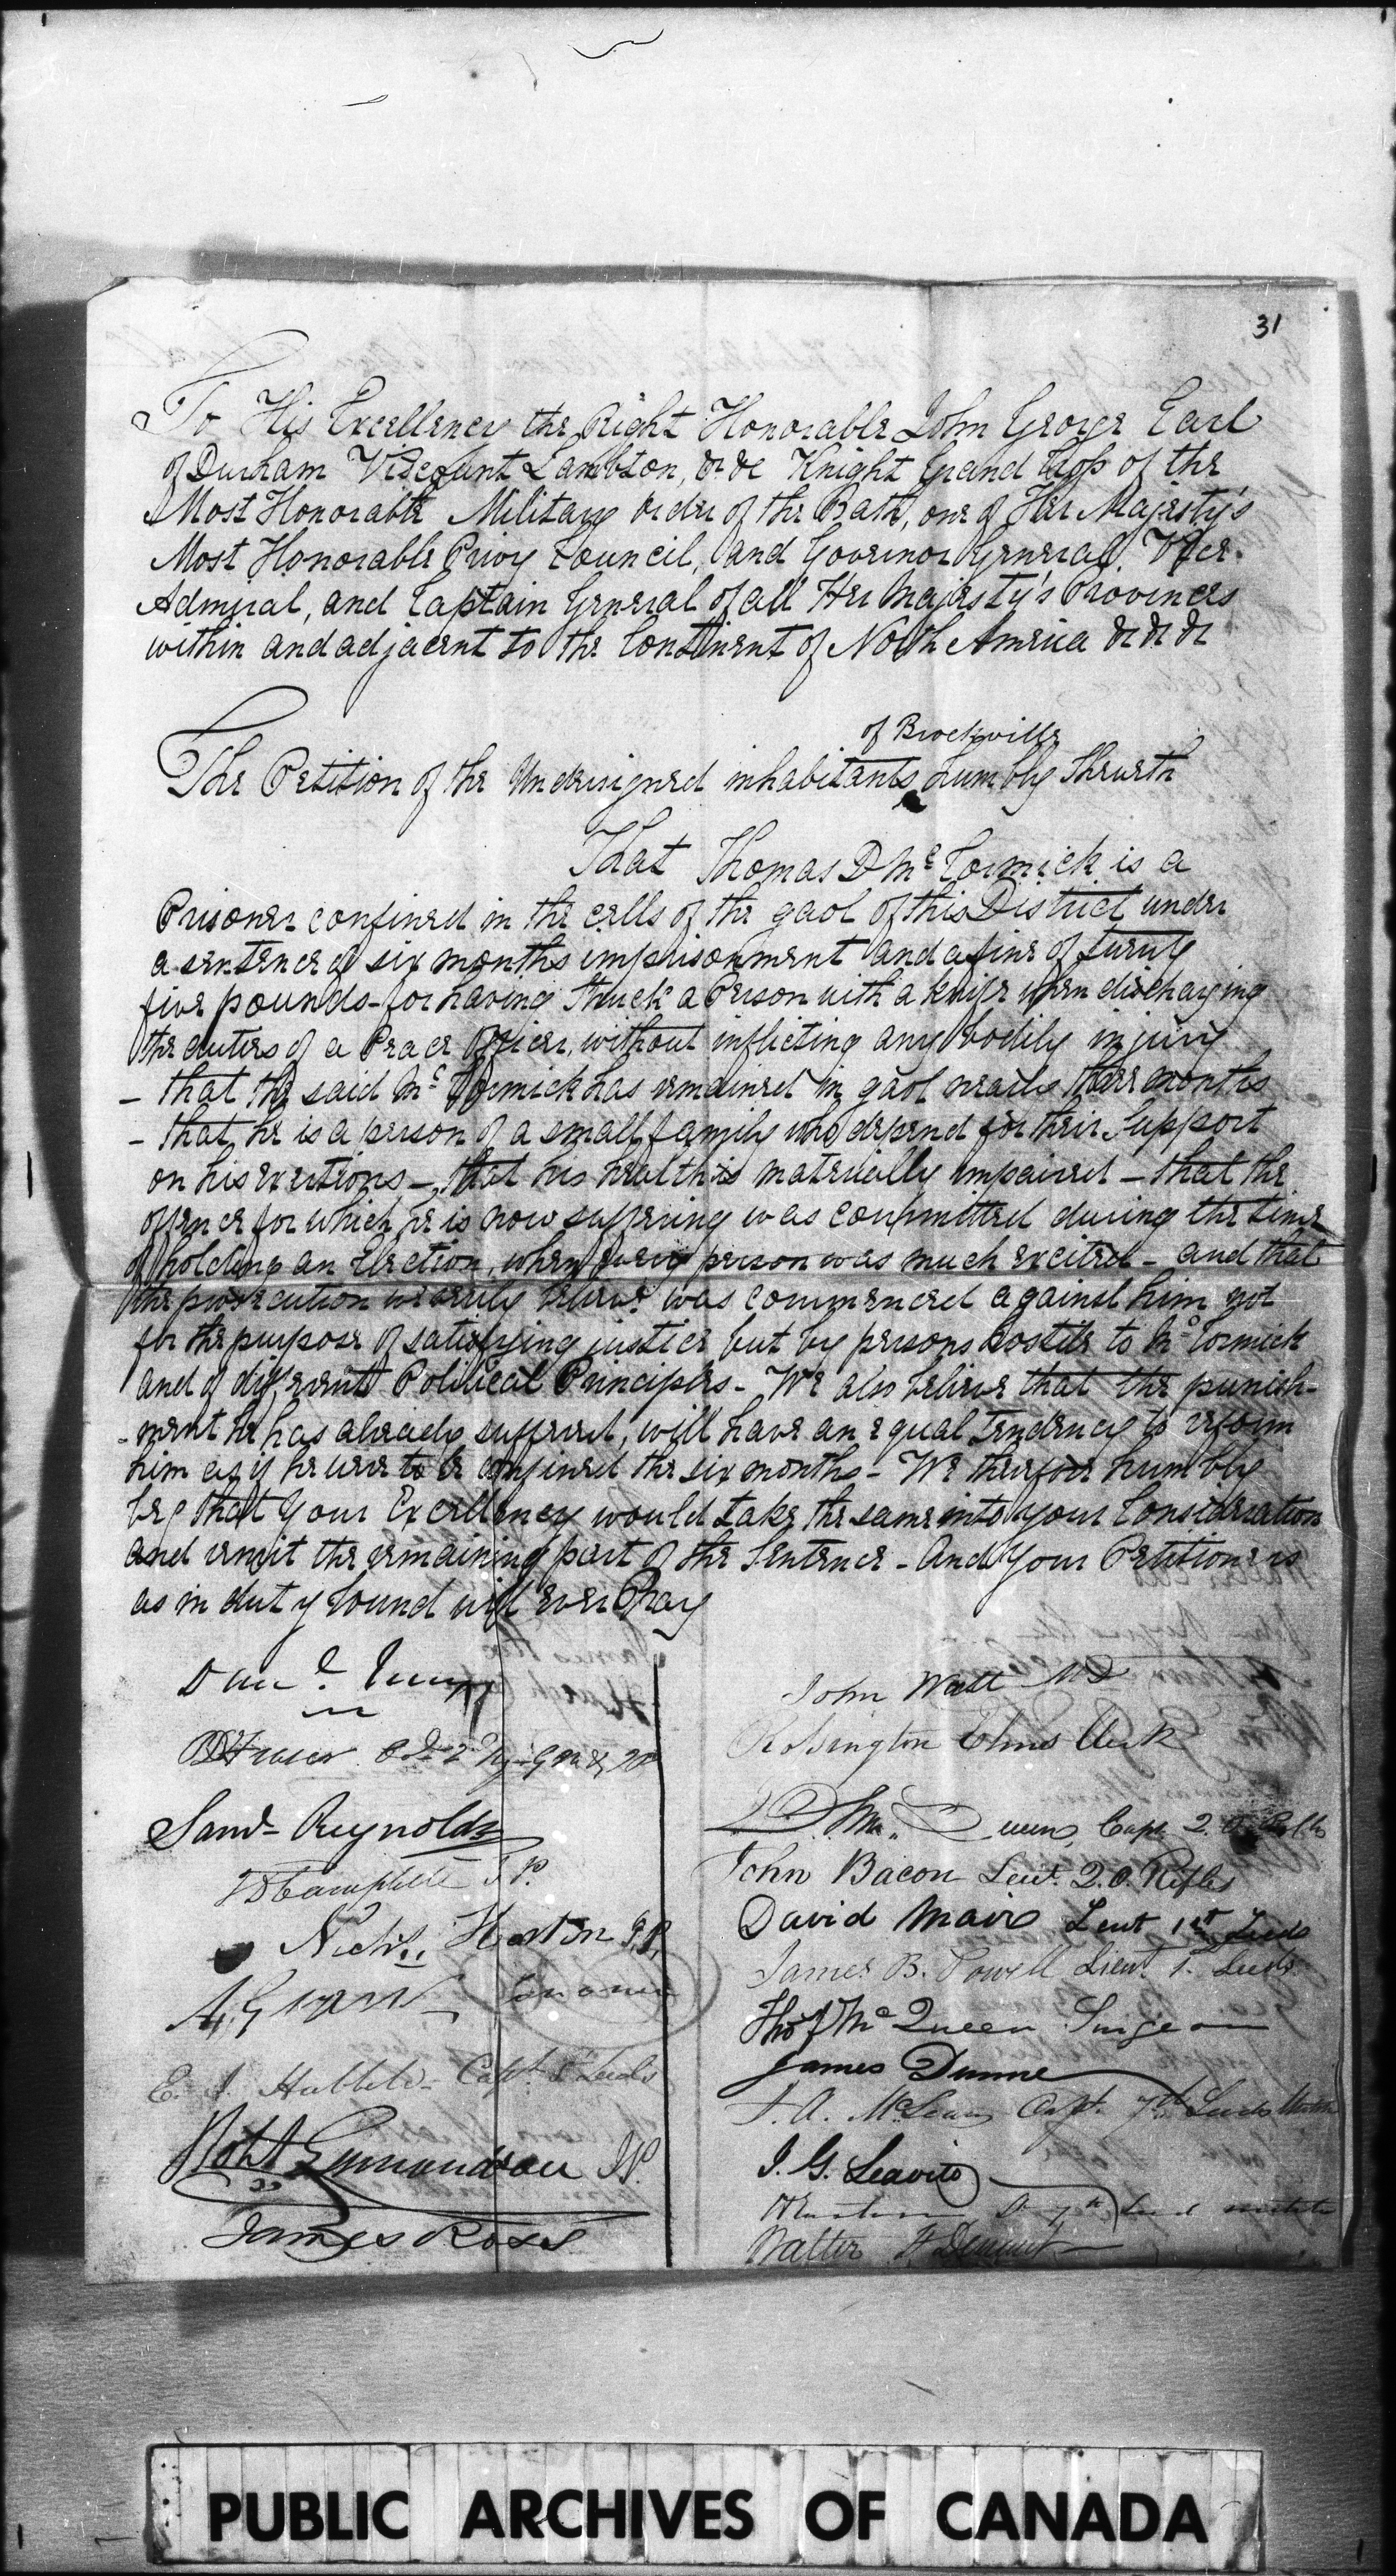 31
To His Excellency the Right Honorable John George Earl
of Durham Viscount Lambton, &c &c Knight Grand Cross of the
Most Honorable Military Order of the Bath, one of Her Majesty's
Most Honorable Privy Council, and Governor General, Vice-
Admiral, and Captain General of all Her Majesty's Provinces
within and adjacent to the Continent of North America &c &c &c
of Brockville
The Petition of the Undersigned inhabitants humbly Sheweth
That Thomas D McCormick is a
Prisoner confined in the cells of the gaol of this District under
a sentence of six months imprisonment and a fine of twenty
five pounds - for having struck a Person with a knife when discharging
the duties of a Peace Officer, without inflicting any bodily injury
- that the said McCormick has remained in gaol nearly three months
- that he is a person of a small family who depend for their Support
on his exertions - that his health is materially impaired - that the
offence for which he is now suffering was committed during the time
of holding an Election, when every person was much excited - and that
the prosecution we verily believe was commenced against him not
for the purpose of satisfying justice but by persons hostile to McCormick
and of different Political Principles - We also believe that the punish-
-ment he has already suffered, will have an equal tendency to reform
him as if he were to be confined the six months - We therefore humbly
beg that Your Excellency would take the same into your Consideration
and remit the remaining part of the Sentence - And Your Petitioners
as in duty bound will ever Pray
John Watt MD
Rossington Elms Clerk
Queen, Capt 2. O. Rifles
John Bacon Lieut. Q. O. Rifles
David Mair Lieut 1st Leeds
James B. Powell Lieut 1. Leeds
Thos J McQueen Surgeon
James Dunne
J. A. McLean Capt. 7th Leeds
J. G. Leavitt
Walter H Denaut
Fraser
Saml Reynolds
Campbell J P.
Horton J.P.
Coroner
E. J. Hubbell - Capt Leeds
Robt Edmondson JP.
James Ross
PUBLIC ARCHIVES OF CANADA